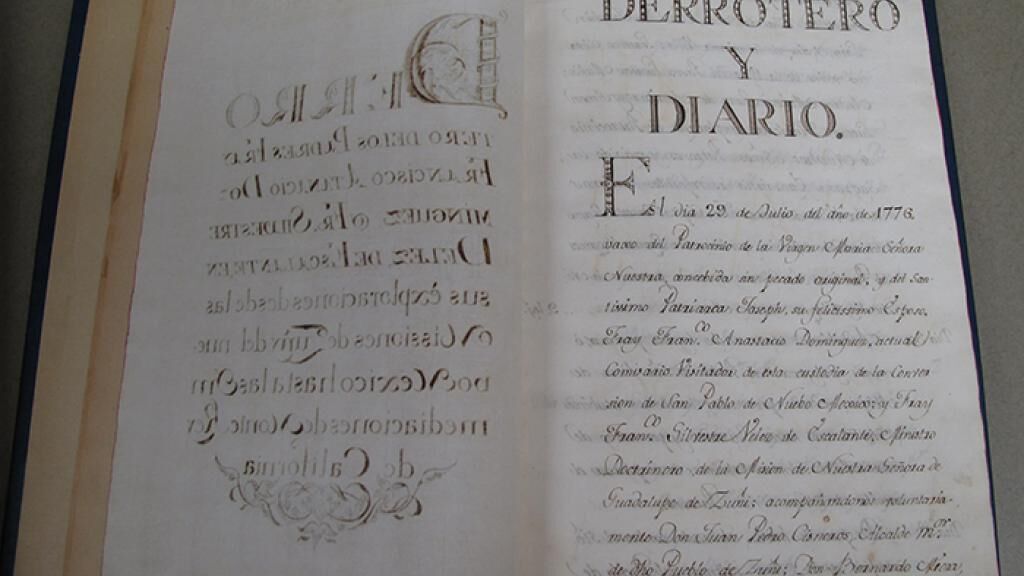 DERRO
TERO DE LOS PADRES FRAY
FRANCISCO ATENACIO DO-
MÍNGUEZ Y FR. SILDESTRE
DELEZ DE ESCALANTE EN
sus exploraciones desde las
Missiones de Zuñi del nue
vo Mexico hasta las Ym
mediaciones de Monte Rey
de California
DERROTERO
Y
DIARIO.
El dia 29 de Julio del año de 1776
vaxo del Patrocinio de la Virgen Maria Señora
Nuestra concebida sin pecado original, y del San-
tissimo Patriarca Joseph, su felicissimo Esposo,
Fray Fran.co Anastacio Dominguez, actual
Comisario Visitador de esta custodia de la Conver
sion de San Pablo de Nuebo Mexico; y Fray
Fran.co Silvestre Velez de Escalante, Ministro
Doctrinero de la Mision de Nuestra Señora de
Guadalupe de Zuñi; acompañandonos voluntaria-
mente Don Juan Pedro Cisneros, Alcalde m.or
de dho Pueblo de Zuñi; Don Bernardo Miera,